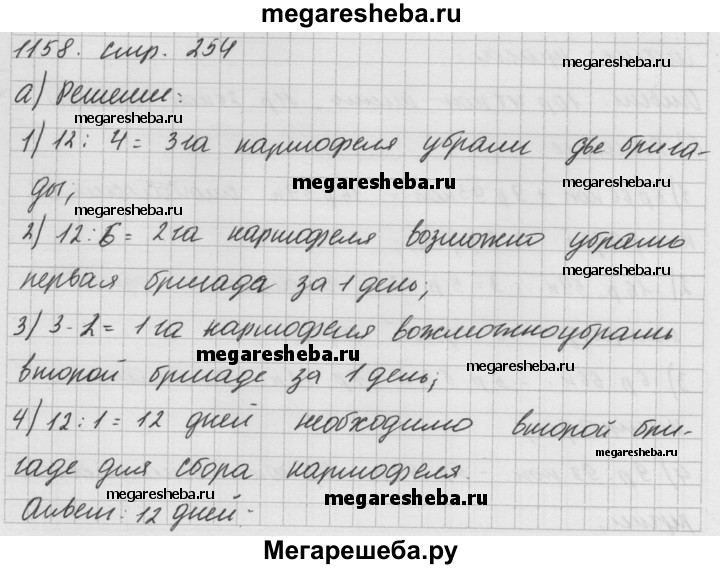 megaresheba.ru
1158. стр. 254
megaresheba.ru
а) Решение:
megaresheba.ru
1) 12 : 4 = 3 га картофеля убрали две брига-
megaresheba.ru megaresheba.ru
ды;
megaresheba.ru
2) 12 : 6 = 2 га картофеля возможно убрать
megaresheba.ru
первая бригада за 1 день;
3) 3 - 2 = 1 га картофеля вожможноубрать
megaresheba.ru megaresheba.ru
второй бригаде за 1 день;
4) 12 : 1 = 12 дней необходимо второй бри-
megaresheba.ru
гаде для сбора картофеля.
megaresheba.ru megaresheba.ru
Ответ: 12 дней.
Мегарешеба.ру